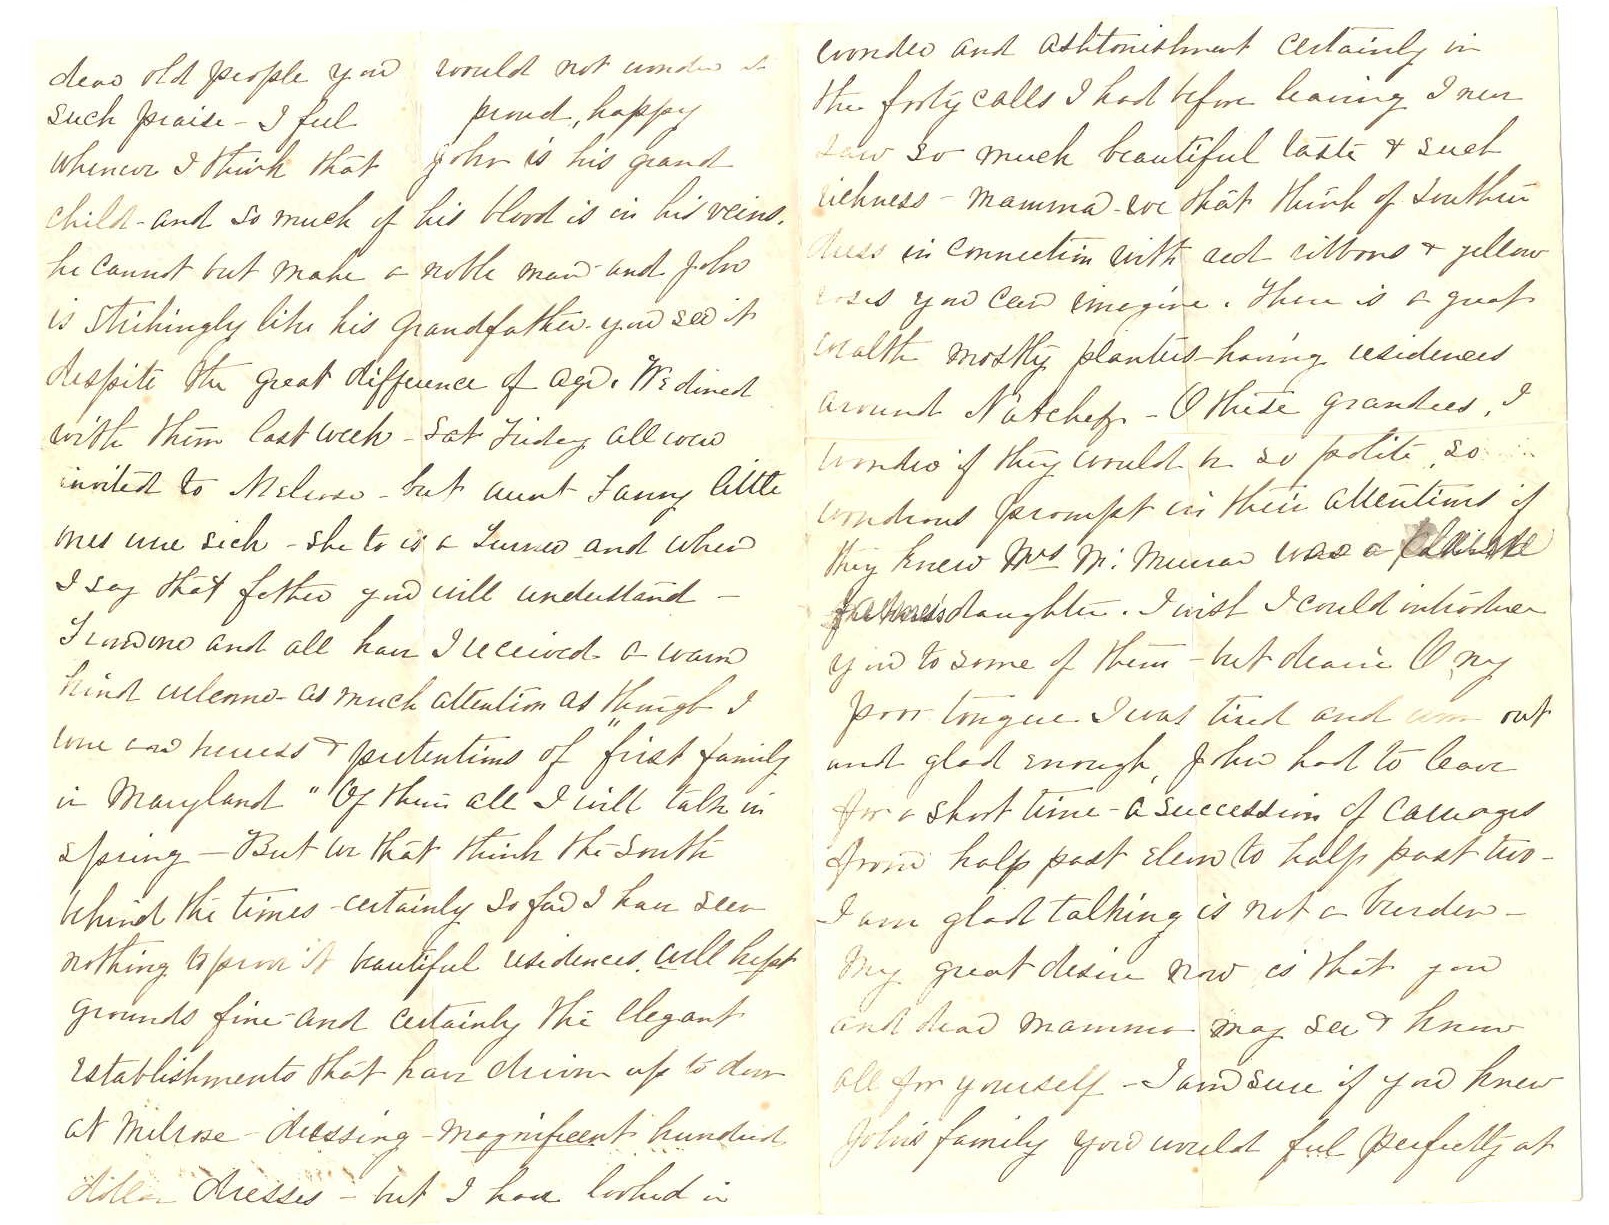 dear old people you would not wonder at
such praise - I feel proud, happy
whenever I think that John is his grand
child - and so much of his blood is in his veins.
he cannot but make a noble man - and John
is strikingly like his Grandfather. you see it
despite the great difference of age. We dined
with them last week - Sat Friday all were
invited to Melrose - but aunt Fanny little
ones were sick - she to is a Turner and when
I say that father you will understand -
From one and all have I received a warm
kind welcome - as much attention as though I
were an heiress & pretentions of "first family
in Maryland" Of them all I will talk in
spring - But we that think the South
behind the times - certainly so far I have seen
nothing to prove it beautiful residences. well kept
grounds fine - and certainly the elegant
establishments that have driven up to door
at Melrose - dressing - magnificent hundred
dollar dresses - but I have looked in
wonder and ashtonishment certainly in
the forty calls I had before leaving I never
saw so much beautiful taste & such
richness - Mamma - we that think of Southern
dress in connection with red ribbons & yellow
roses you can imagine. There is a great
wealth mostly planters having residences
around Natchez - O these grandees, I
wonder if they would be so polite, so
wondrous prompt in their attentions if
they knew Mrs Mc Murran was a
daughter. I wish I could introduce
you to some of them - but dearie O my
poor tongue I was tired and worn out
and glad enough, John had to leave
for a short time - a succession of carriages
from half past eleven to half past two -
I am glad talking is not a burden -
My great desire now is that you
and dear mamma may see & know
all for yourself - I am sure if you knew
John's family you would feel perfectly at